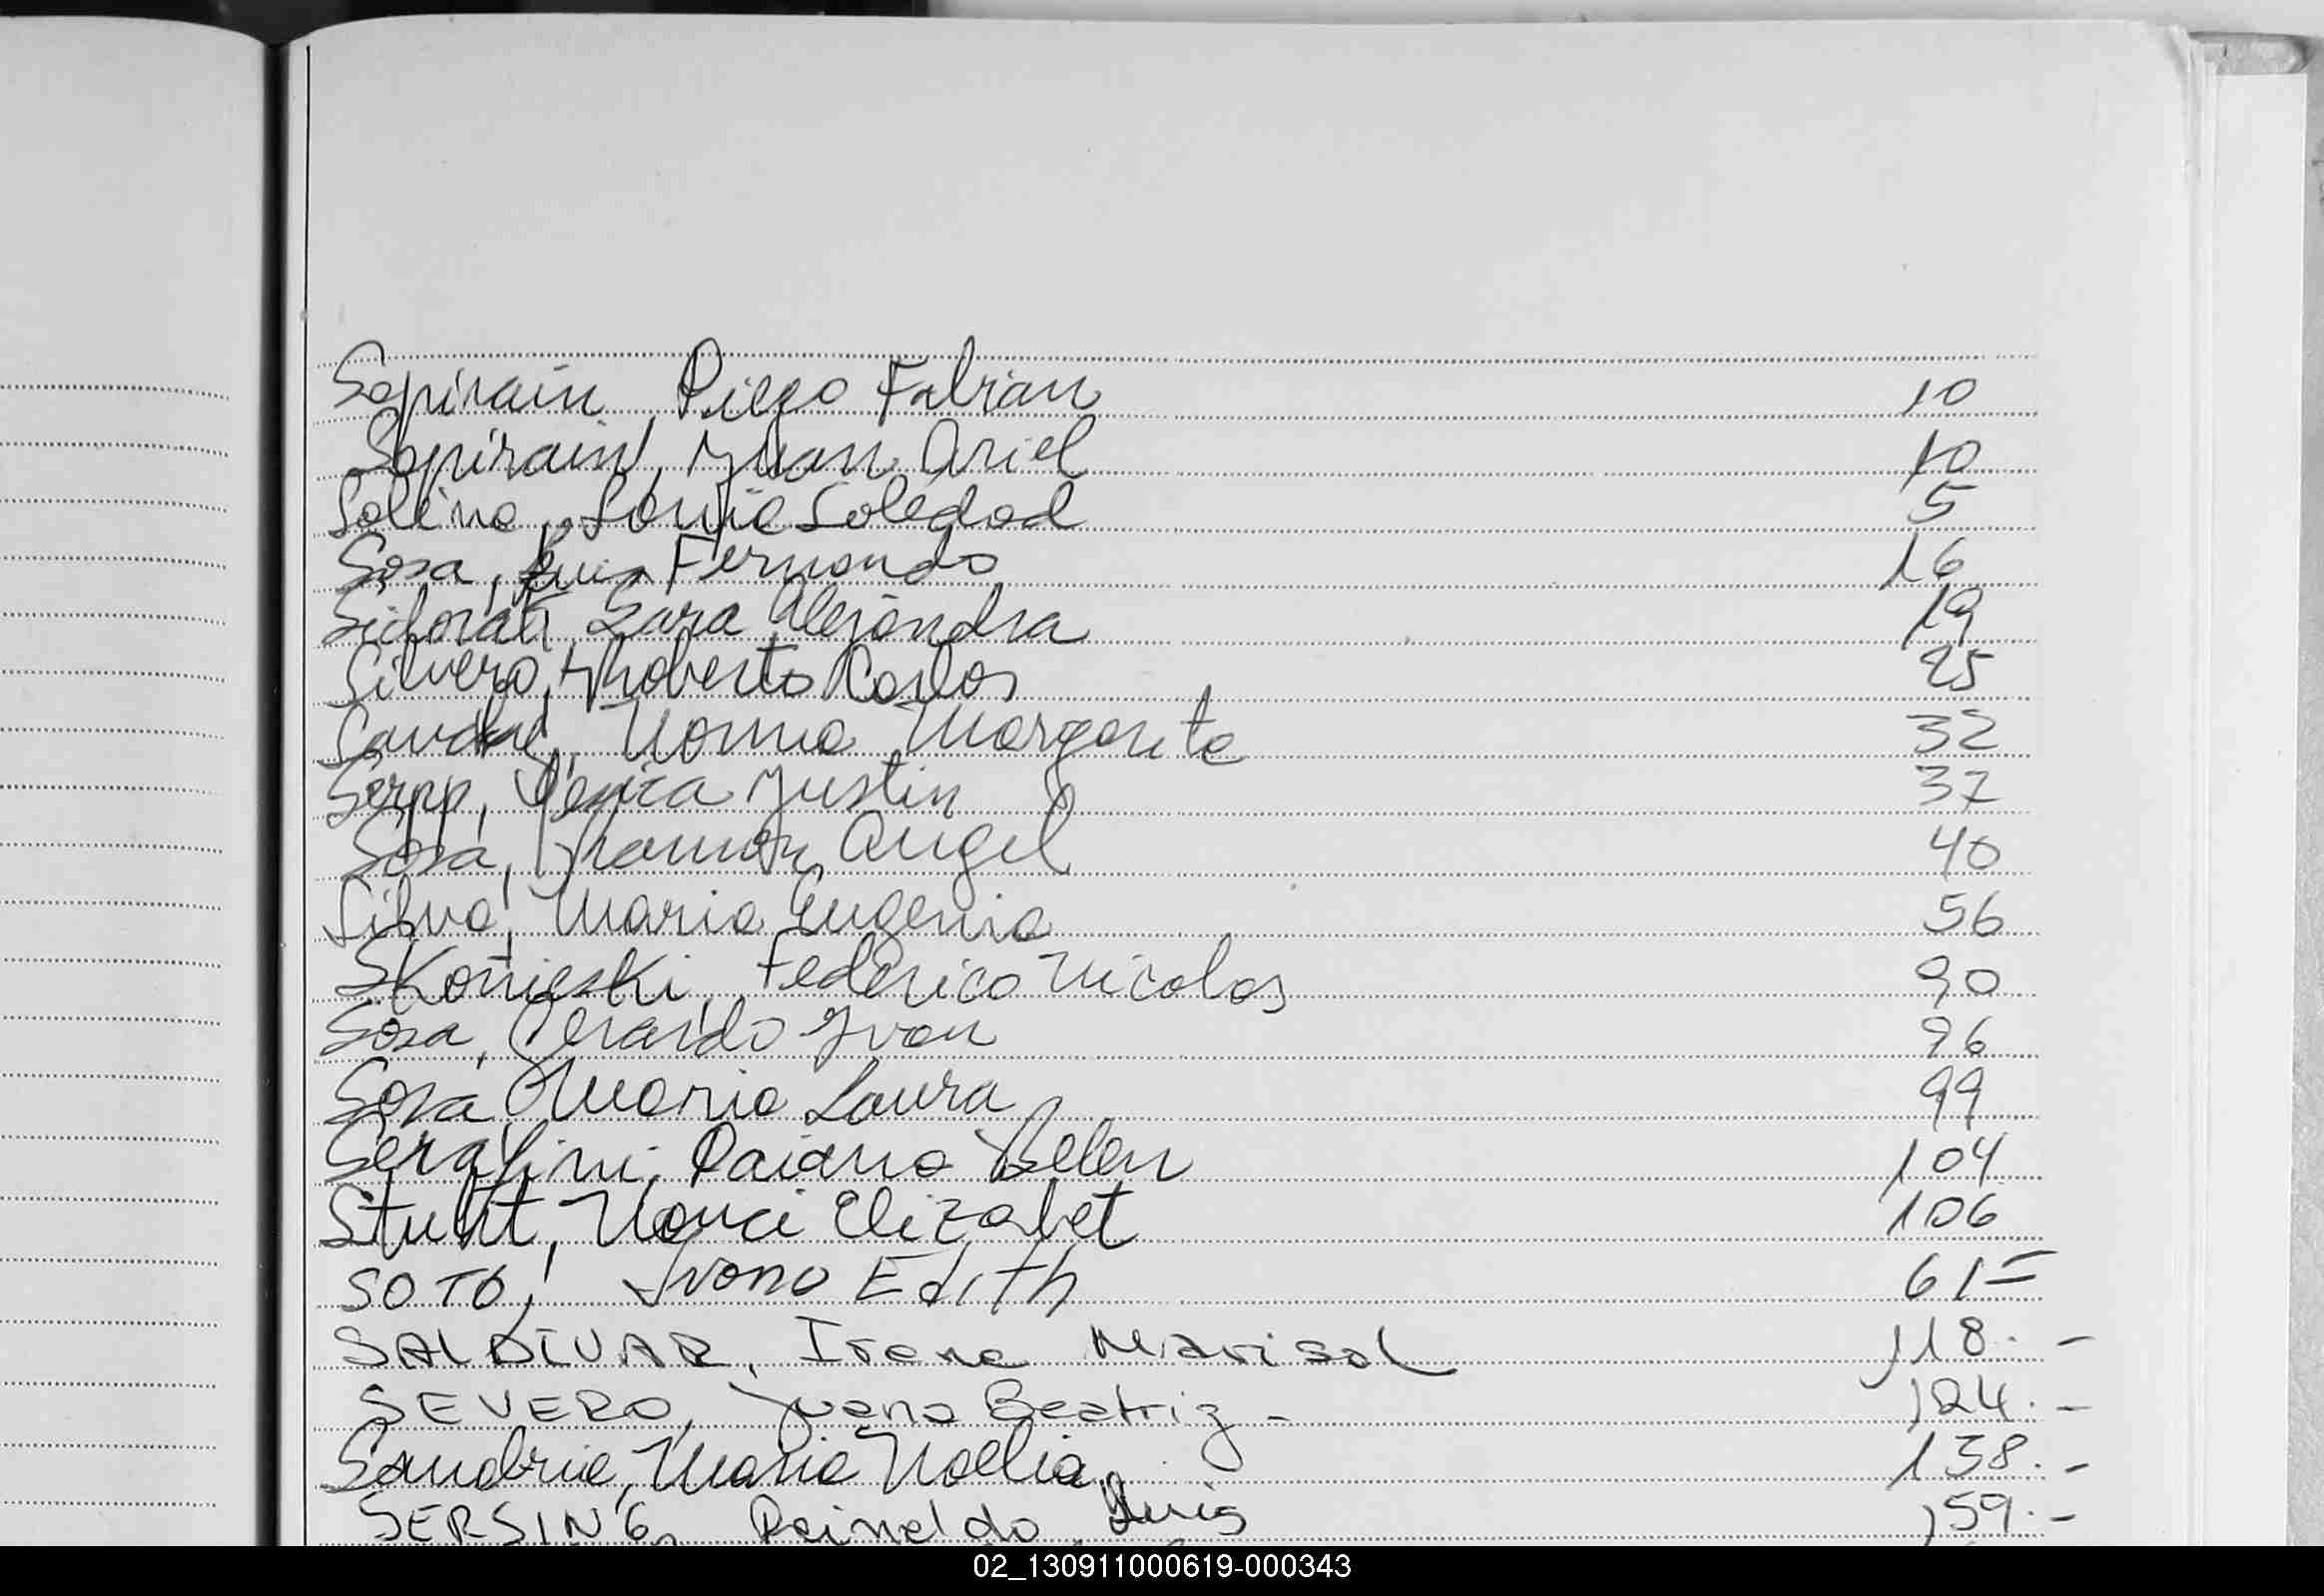 Sapirain, Diego Fabian 10
Sapirain, Juan Ariel 10
Solino, Sonia Soledad 5
Sosa, Luis Fernando 16
Sara Alejandra 19
Silvero, Roberto Carlos 25
Norma Margarita 32
Serpp, Justin 37
Sosa, Ramon Angel 40
Silva, Maria Eugenia 56
Skonieski, Federico Nicolas 90
Sosa, Gerardo Ivan 96
Sosa Maria Laura 99
Serafini, Daiana Belen 104
Stuht, Nanci Elizabet 106
SOTO, Ivana Edith 61=
SALDIVAR, Irene Marisol 118.-
SEVERO, Juana Beatriz - 124.-
Sanabria, Maria Noelia 138.-
SERSING, Reinaldo Luis 159.-
02_130911000619-000343